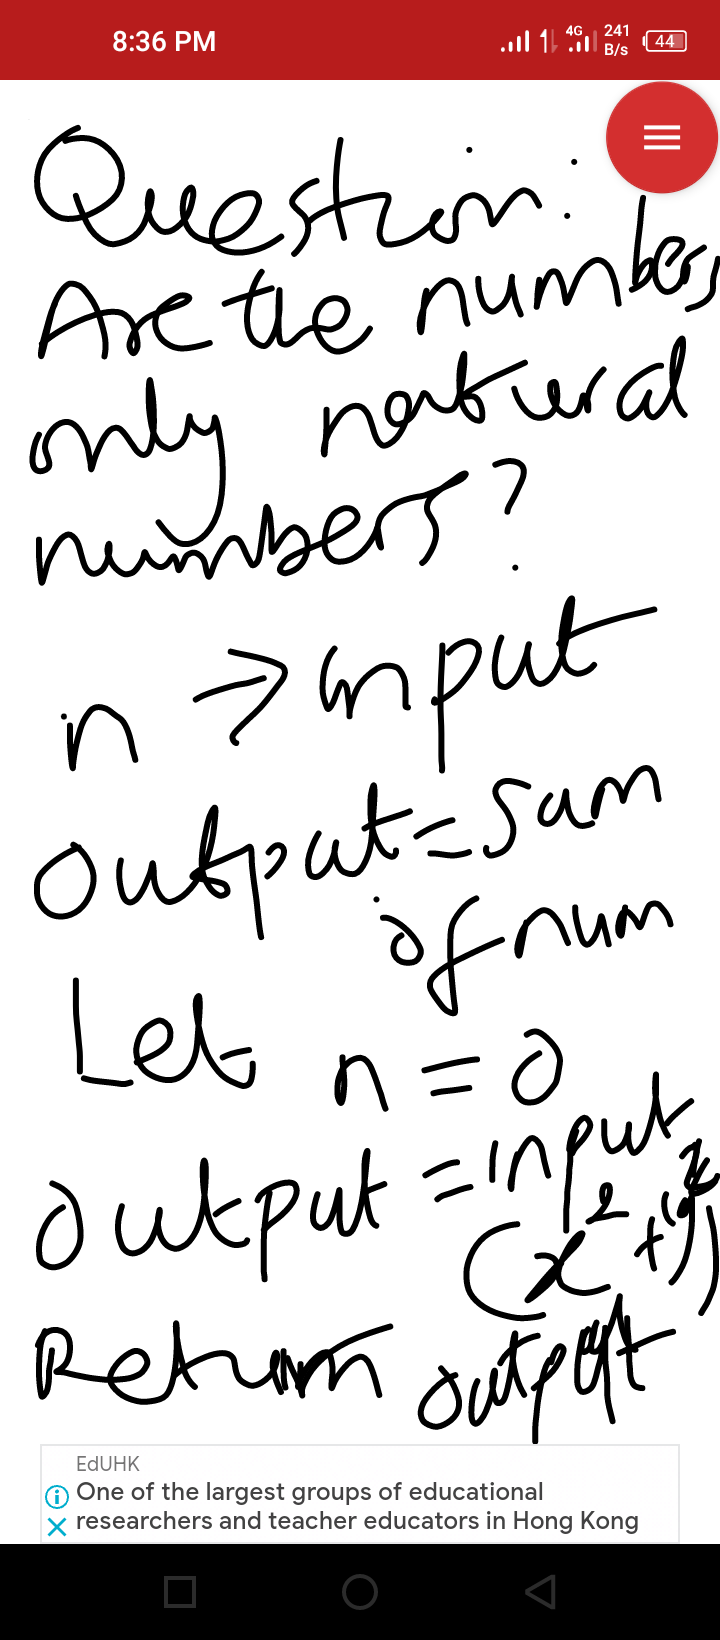 8:36 PM
4G 241 B/s 44
Question:
Are the numbers
only natural
numbers?
n → input
output = sum
of num
Let n = 0
output = input
Return output
EdUHK
One of the largest groups of educational
researchers and teacher educators in Hong Kong